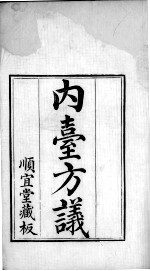 內臺方議
順宜堂藏板